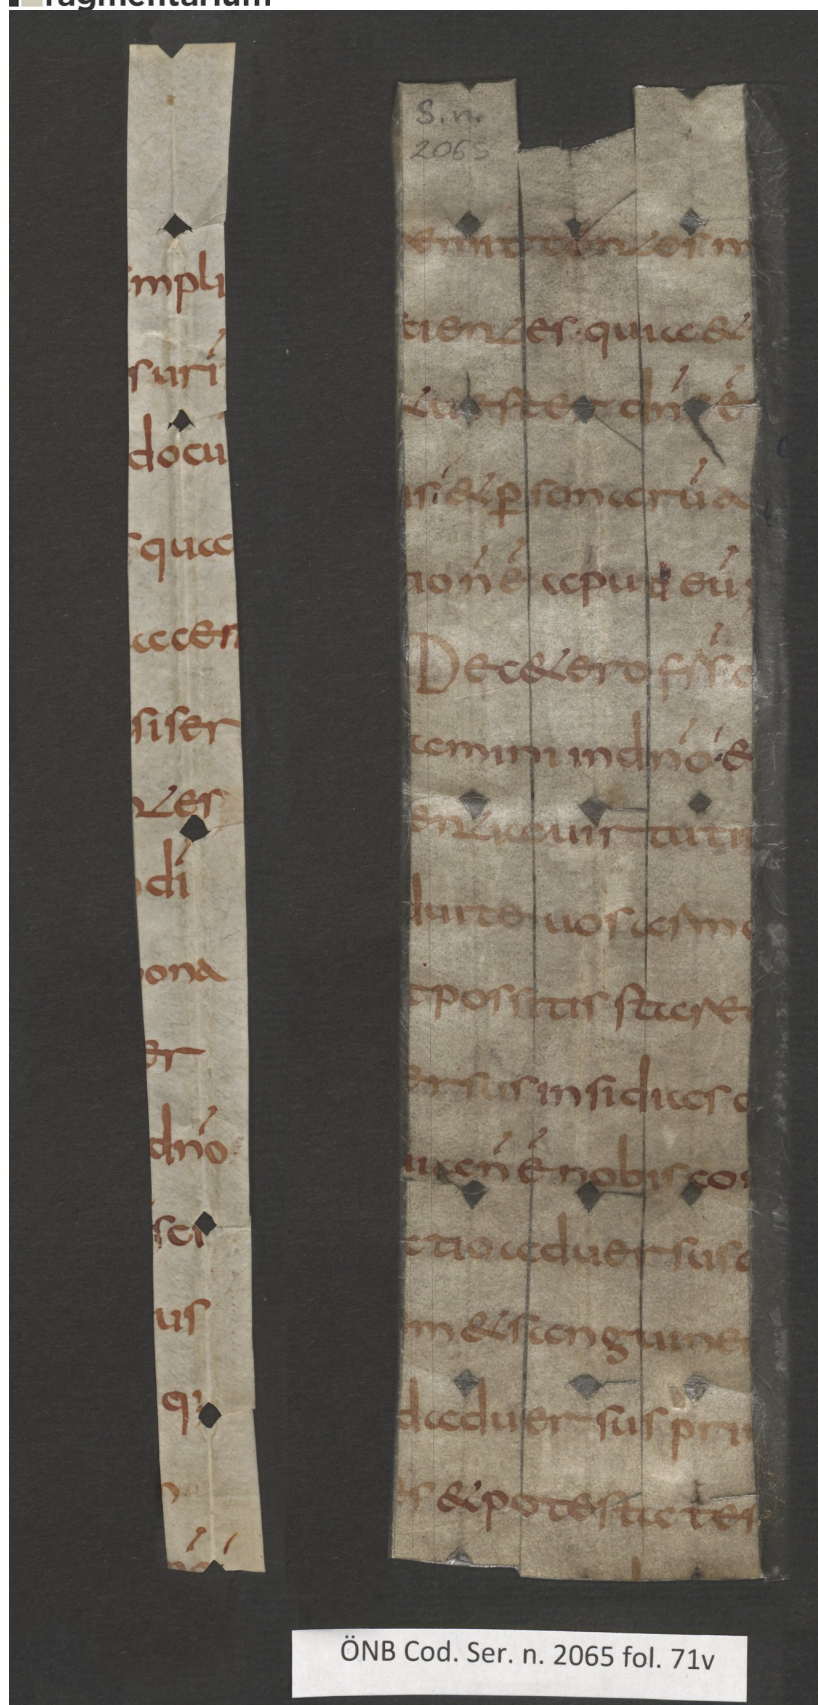 fragmentarium
S. n.
2065
impli
suri
docu
squa
accen
siser
ntes
di
ona
er
dno
sci
us
q
remittentes m
tientes quia &
uester dns ē
is & psonarū a
tio n̄ ē apud eū
De cetero frs c
tamini in dno &
entia uirtuti
duite uos arma
t possitis stare
ersus insidias
uia n̄ ē nobis con
ctio aduersus c
m & sanguinem
d aduersus prin
es & potestates
ÖNB Cod. Ser. n. 2065 fol. 71v